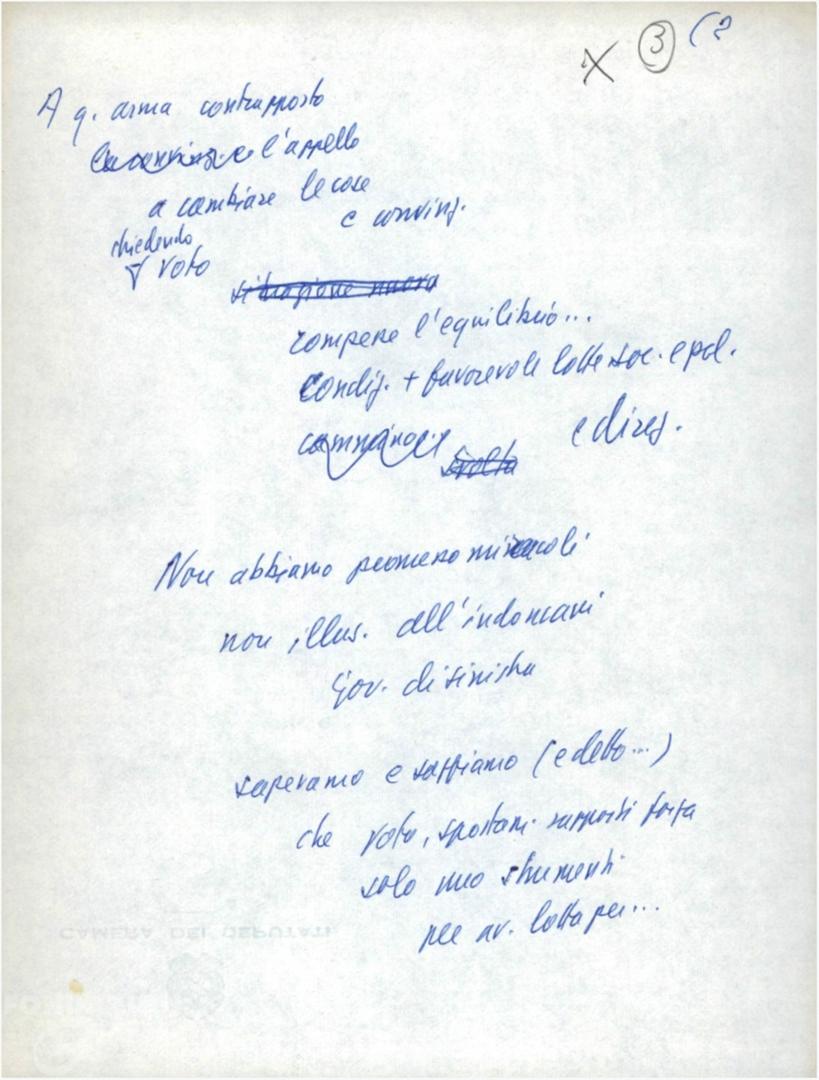 X (3) (2
A q. arma contrapposto
l'appello
a cambiare le cose
e convinz.
chiedendo
voto
situazione nuova
rompere l'equilibrio...
Condiz. + favorevole lotte soc. e pol.
e direz.
svolta
Non abbiamo promesso miracoli
non illus. all'indomani
Gov. di sinistra
sapevamo e sappiamo (e detto...)
che voto, spostam. rapporti forza
solo uno strumenti
per av. lotta per...
CAMERA DEI DEPUTATI